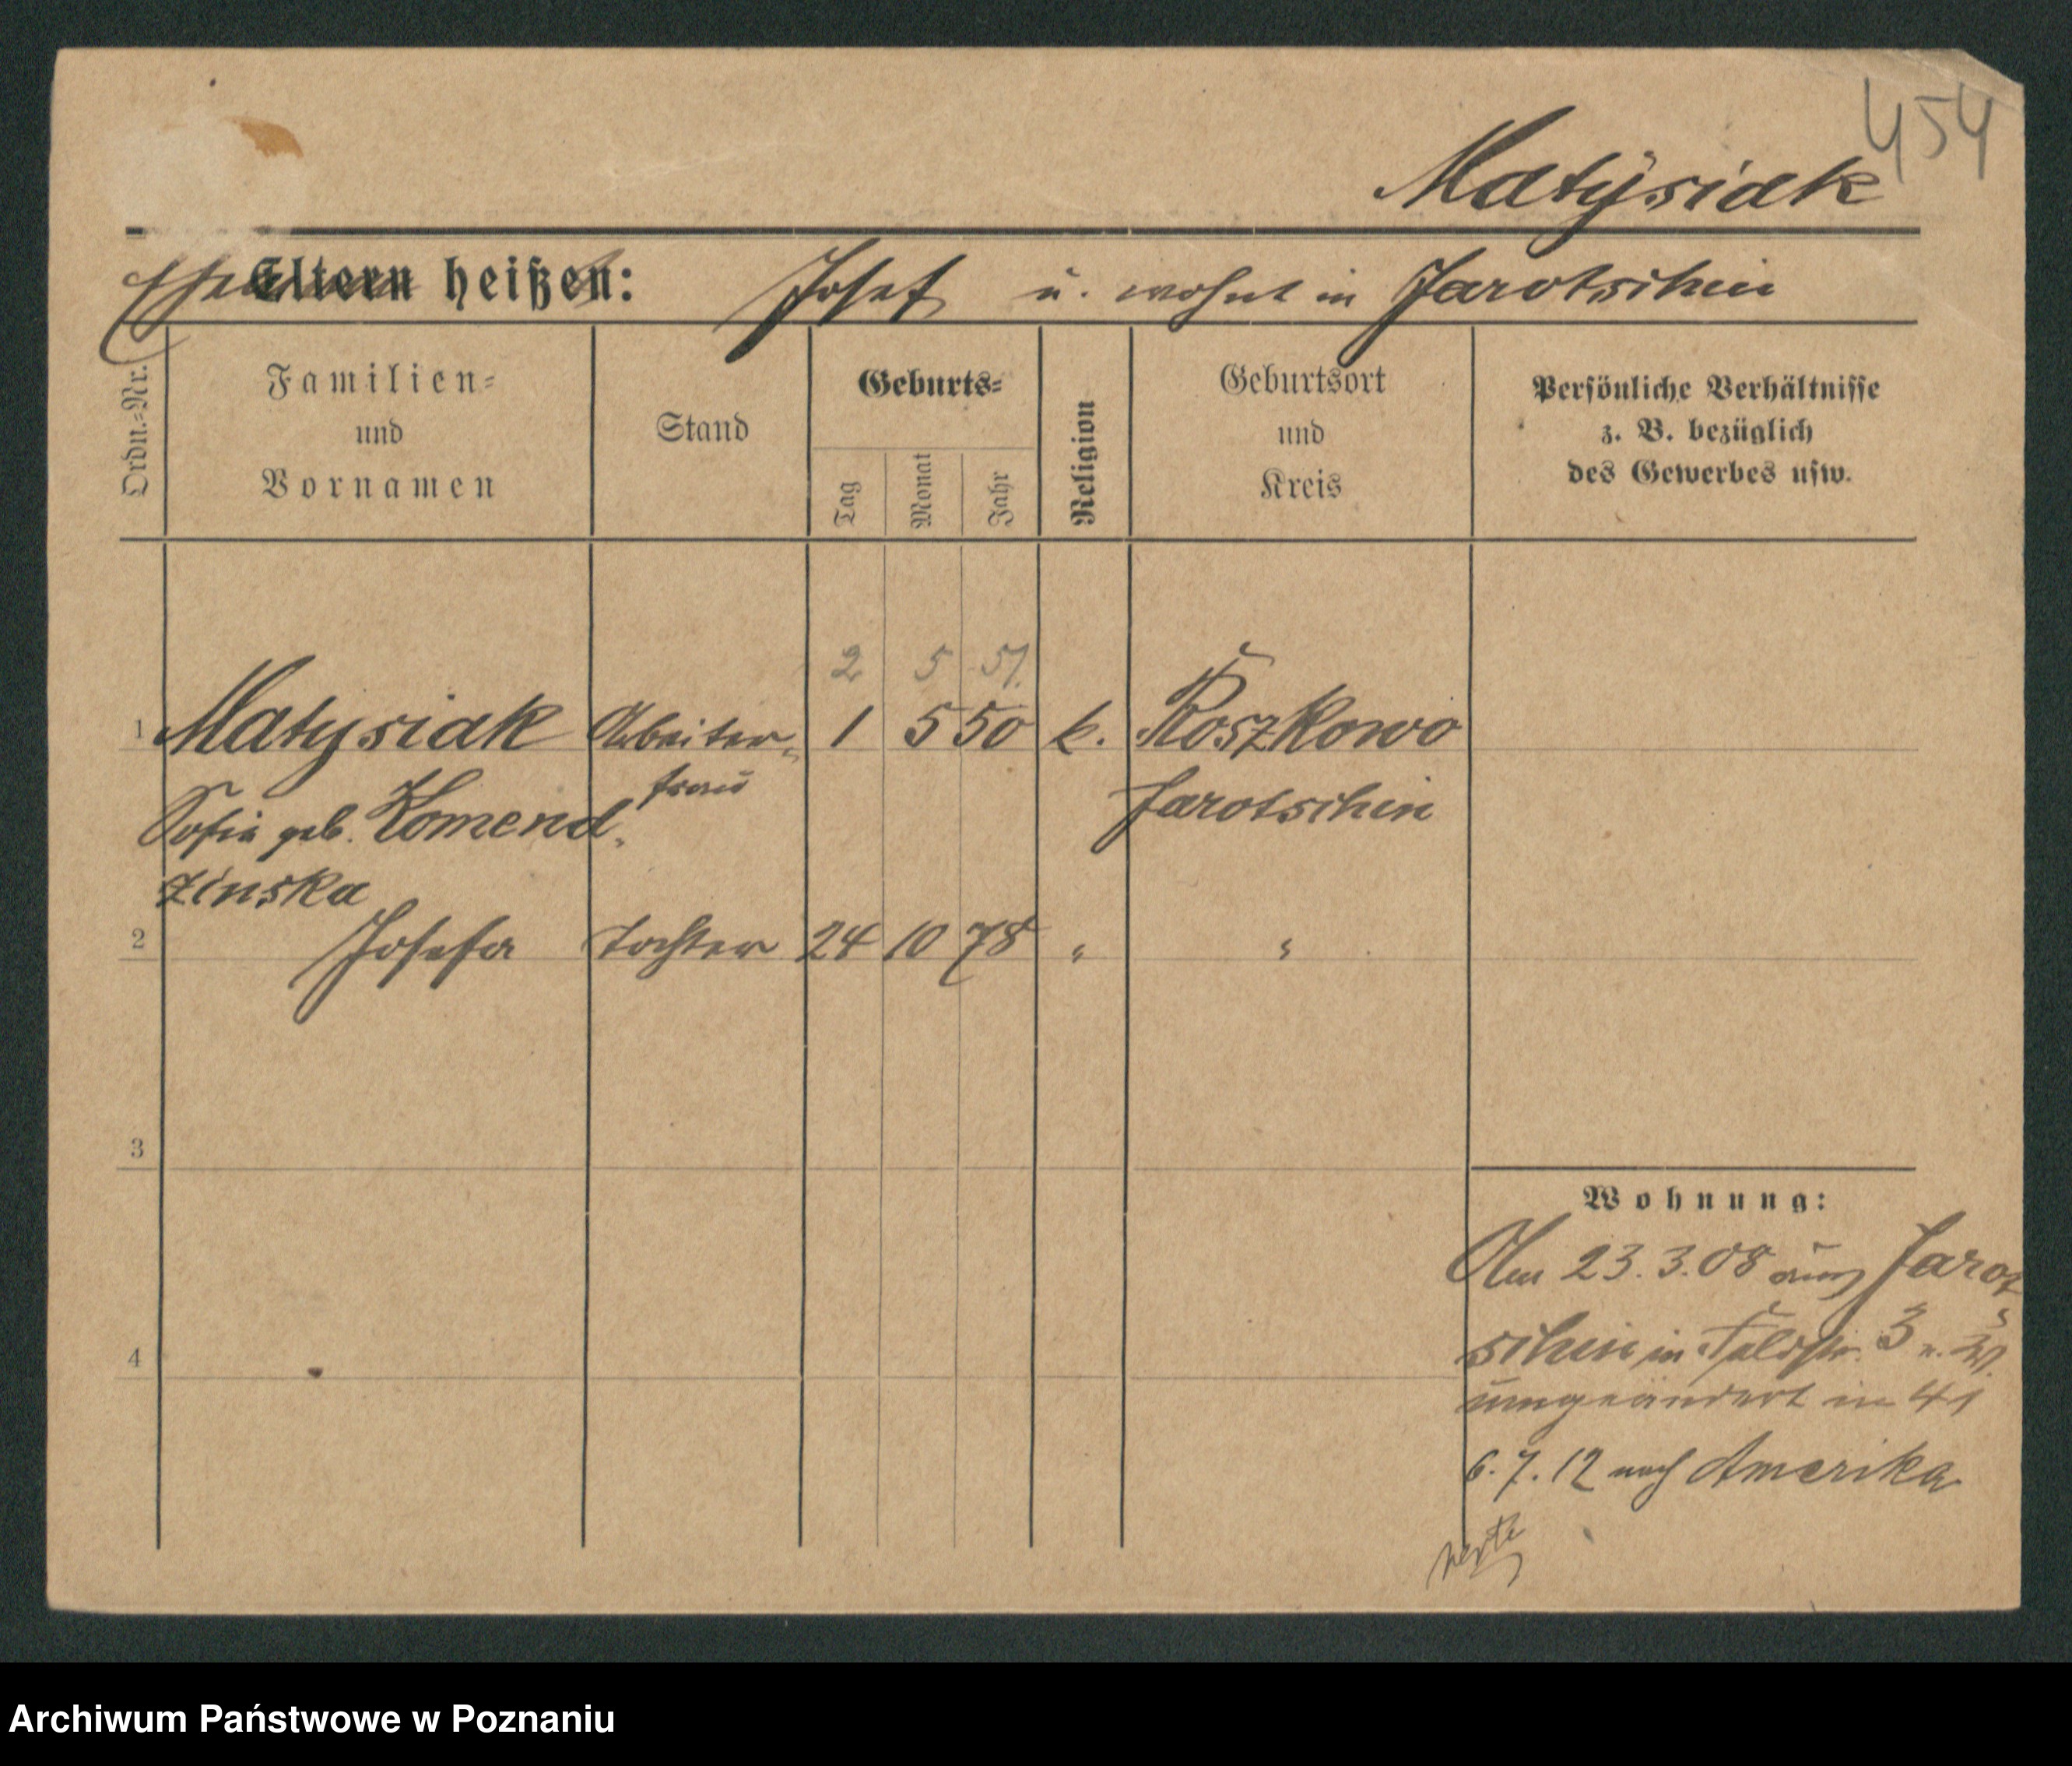 454
Matysiak
Eltern heißen: Josef u. wohnt in Jarotschin
Ordn.=Nr.
Familien=
und
Vornamen
Stand
Geburts=
Tag
Monat
Jahr
Religion
Geburtsort
und
Kreis
Persönliche Verhältnisse
z. B. bezüglich
des Gewerbes usw.
2 5 51.
1 Matysiak Arbeiter- 1 5 50 k. Roszkowo
frau
Sofia geb. Komend- Jarotschin
zinska
2 Josefa Tochter 24 10 78 " "
3
4
Wohnung:
Am 23.3.08 aus Jarot
schin in Feldstr. 3 u.
umgeändert in 41
6.7.12 nach Amerika
Archiwum Państwowe w Poznaniu